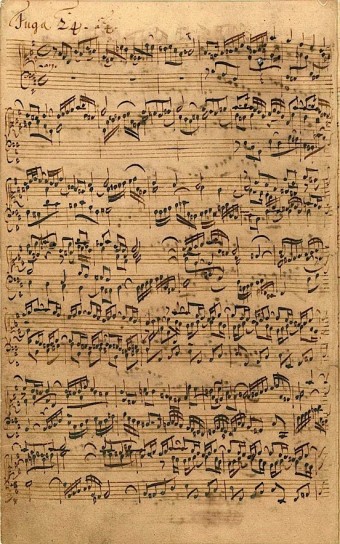 Fuga 24.